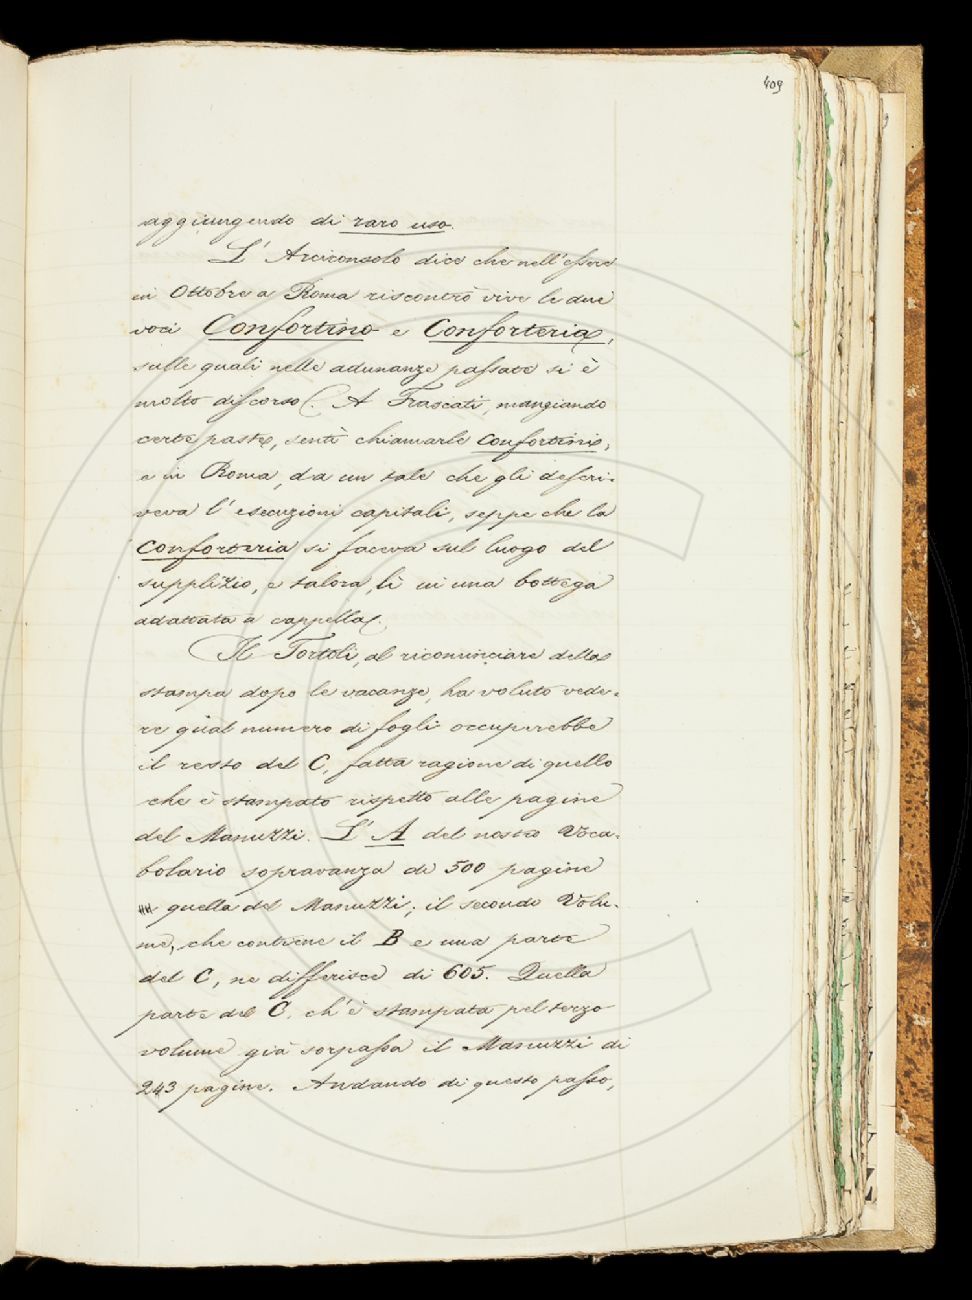 409
aggiungendo di raro uso.
L' Arciconsolo dice che nell'essere
in Ottobre a Roma riscontrò vive le due
voci Confortino e Conforteria,
sulle quali nelle adunanze passate si è
molto discorso. A Frascati, mangiando
certe paste, sentì chiamarle confortini,
e in Roma, da un tale che gli descri-
veva l'esecuzioni capitali, seppe che la
conforteria si faceva sul luogo del
supplizio, e talora, lì in una bottega
adattata a cappella.
Il Tortoli, al ricominciare della
stampa dopo le vacanze, ha voluto vede-
re qual numero di fogli occuperebbe
il resto del C, fatta ragione di quello
che è stampato rispetto alle pagine
del Manuzzi. L'A del nostro Voca-
bolario sopravanza di 500 pagine
quella del Manuzzi; il secondo Volu-
me, che contiene il B e una parte
del C, ne differisce di 605. Quella
parte del C, ch'è stampata pel terzo
volume già sorpassa il Manuzzi di
243 pagine. Andando di questo passo,